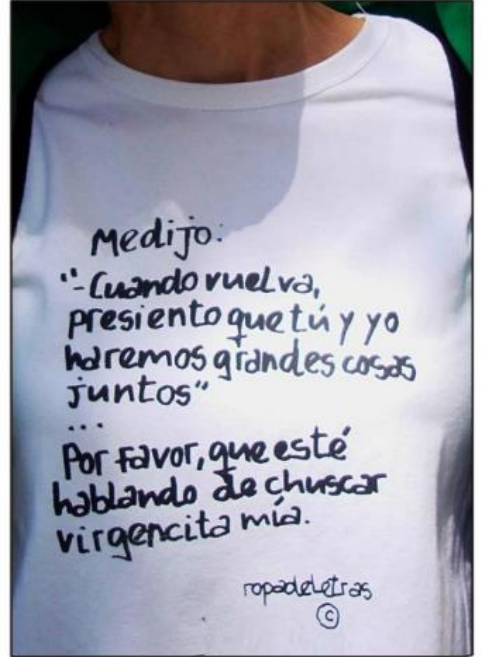 Me dijo:
"-Cuando vuelva,
presiento que tú y yo
haremos grandes cosas
juntos"
...
Por favor, que esté
hablando de chuscar
virgencita mía.
ropadeletras
©